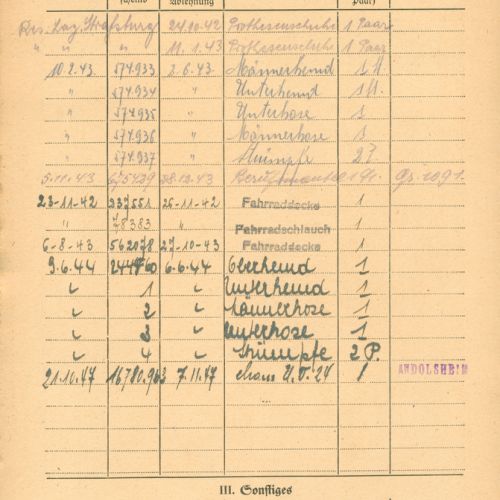 schein Ablehnung Paar)
Res. Laz. Straßburg 24.10.42 Prothesenschuhe 1 Paar
" " " 11.1.43 Prothesenschuhe 1 Paar
10.2.43 574.933 2.6.43 Männerhemd 1
" 574.934 " Unterhemd 1
" 574.935 " Unterhose 1
" 574.936 " Männerhose 1
" 574.937 " Strümpfe 2
5.11.43 28.12.43
23-11-42 337551 25-11-42 Fahrraddecke 1
" 78383 " Fahrradschlauch 1
6-8-43 562078 27-10-43 Fahrraddecke 1
9.6.44 6.6.44 Oberhemd 1
" 1 " Unterhemd 1
" 2 " Männerhose 1
" 3 " Unterhose 1
" 4 " Strümpfe 2 P.
21.10.47 16780.963 7.11.47 1 ANDOLSHEIM
III. Sonstiges